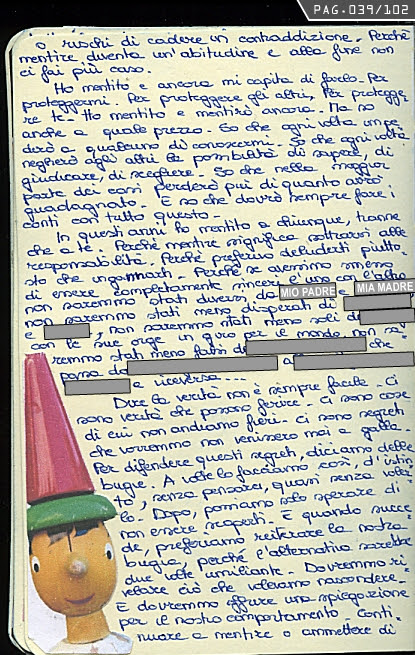 PAG-039/102
o rischi di cadere in contraddizione. Perché
mentire diventa un'abitudine e alla fine non
ci fai più caso.
Ho mentito e ancora mi capita di farlo. Per
proteggermi. Per proteggere gli altri. Per protegge
re te. Ho mentito e mentirò ancora. Ma so
anche a quale prezzo. So che ogni volta impe
dirò a qualcuno di conoscermi. So che ogni volta
negherò agli altri la possibilità di sapere, di
giudicare, di scegliere. So che nella maggior
parte dei casi perderò più di quanto avrò
guadagnato. E so che dovrò sempre fare i
conti con tutto questo.
In questi anni ho mentito a chiunque, tranne
che a te. Perché mentire significa sottrarsi alle
responsabilità. Perché preferivo deluderti piutto
sto che ingannarti. Perché se avessimo smesso
di essere completamente sinceri l'uno con l'altro
non saremmo stati diversi da MIO PADRE e MIA MADRE
non saremmo stati meno disperati di
e , non saremmo stati meno soli di
con le sue orge in giro per il mondo, non sa
remmo stati meno falsi di che
passa da a
e viceversa...
Dire la verità non è sempre facile. Ci
sono verità che possono ferire. Ci sono cose
di cui non andiamo fieri. Ci sono segreti
che vorremmo non venissero mai a galla.
Per difendere questi segreti, diciamo delle
bugie. A volte lo facciamo così, d'istin
to, senza pensarci, quasi senza voler
lo. Dopo, possiamo solo sperare di
non essere scoperti. E quando succe
de, preferiamo reiterare la nostra
bugia, perché l'alternativa sarebbe
due volte umiliante. Dovremmo ri
velare ciò che volevamo nascondere.
E dovremmo offrire una spiegazione
per il nostro comportamento. Conti
nuare a mentire o ammettere di